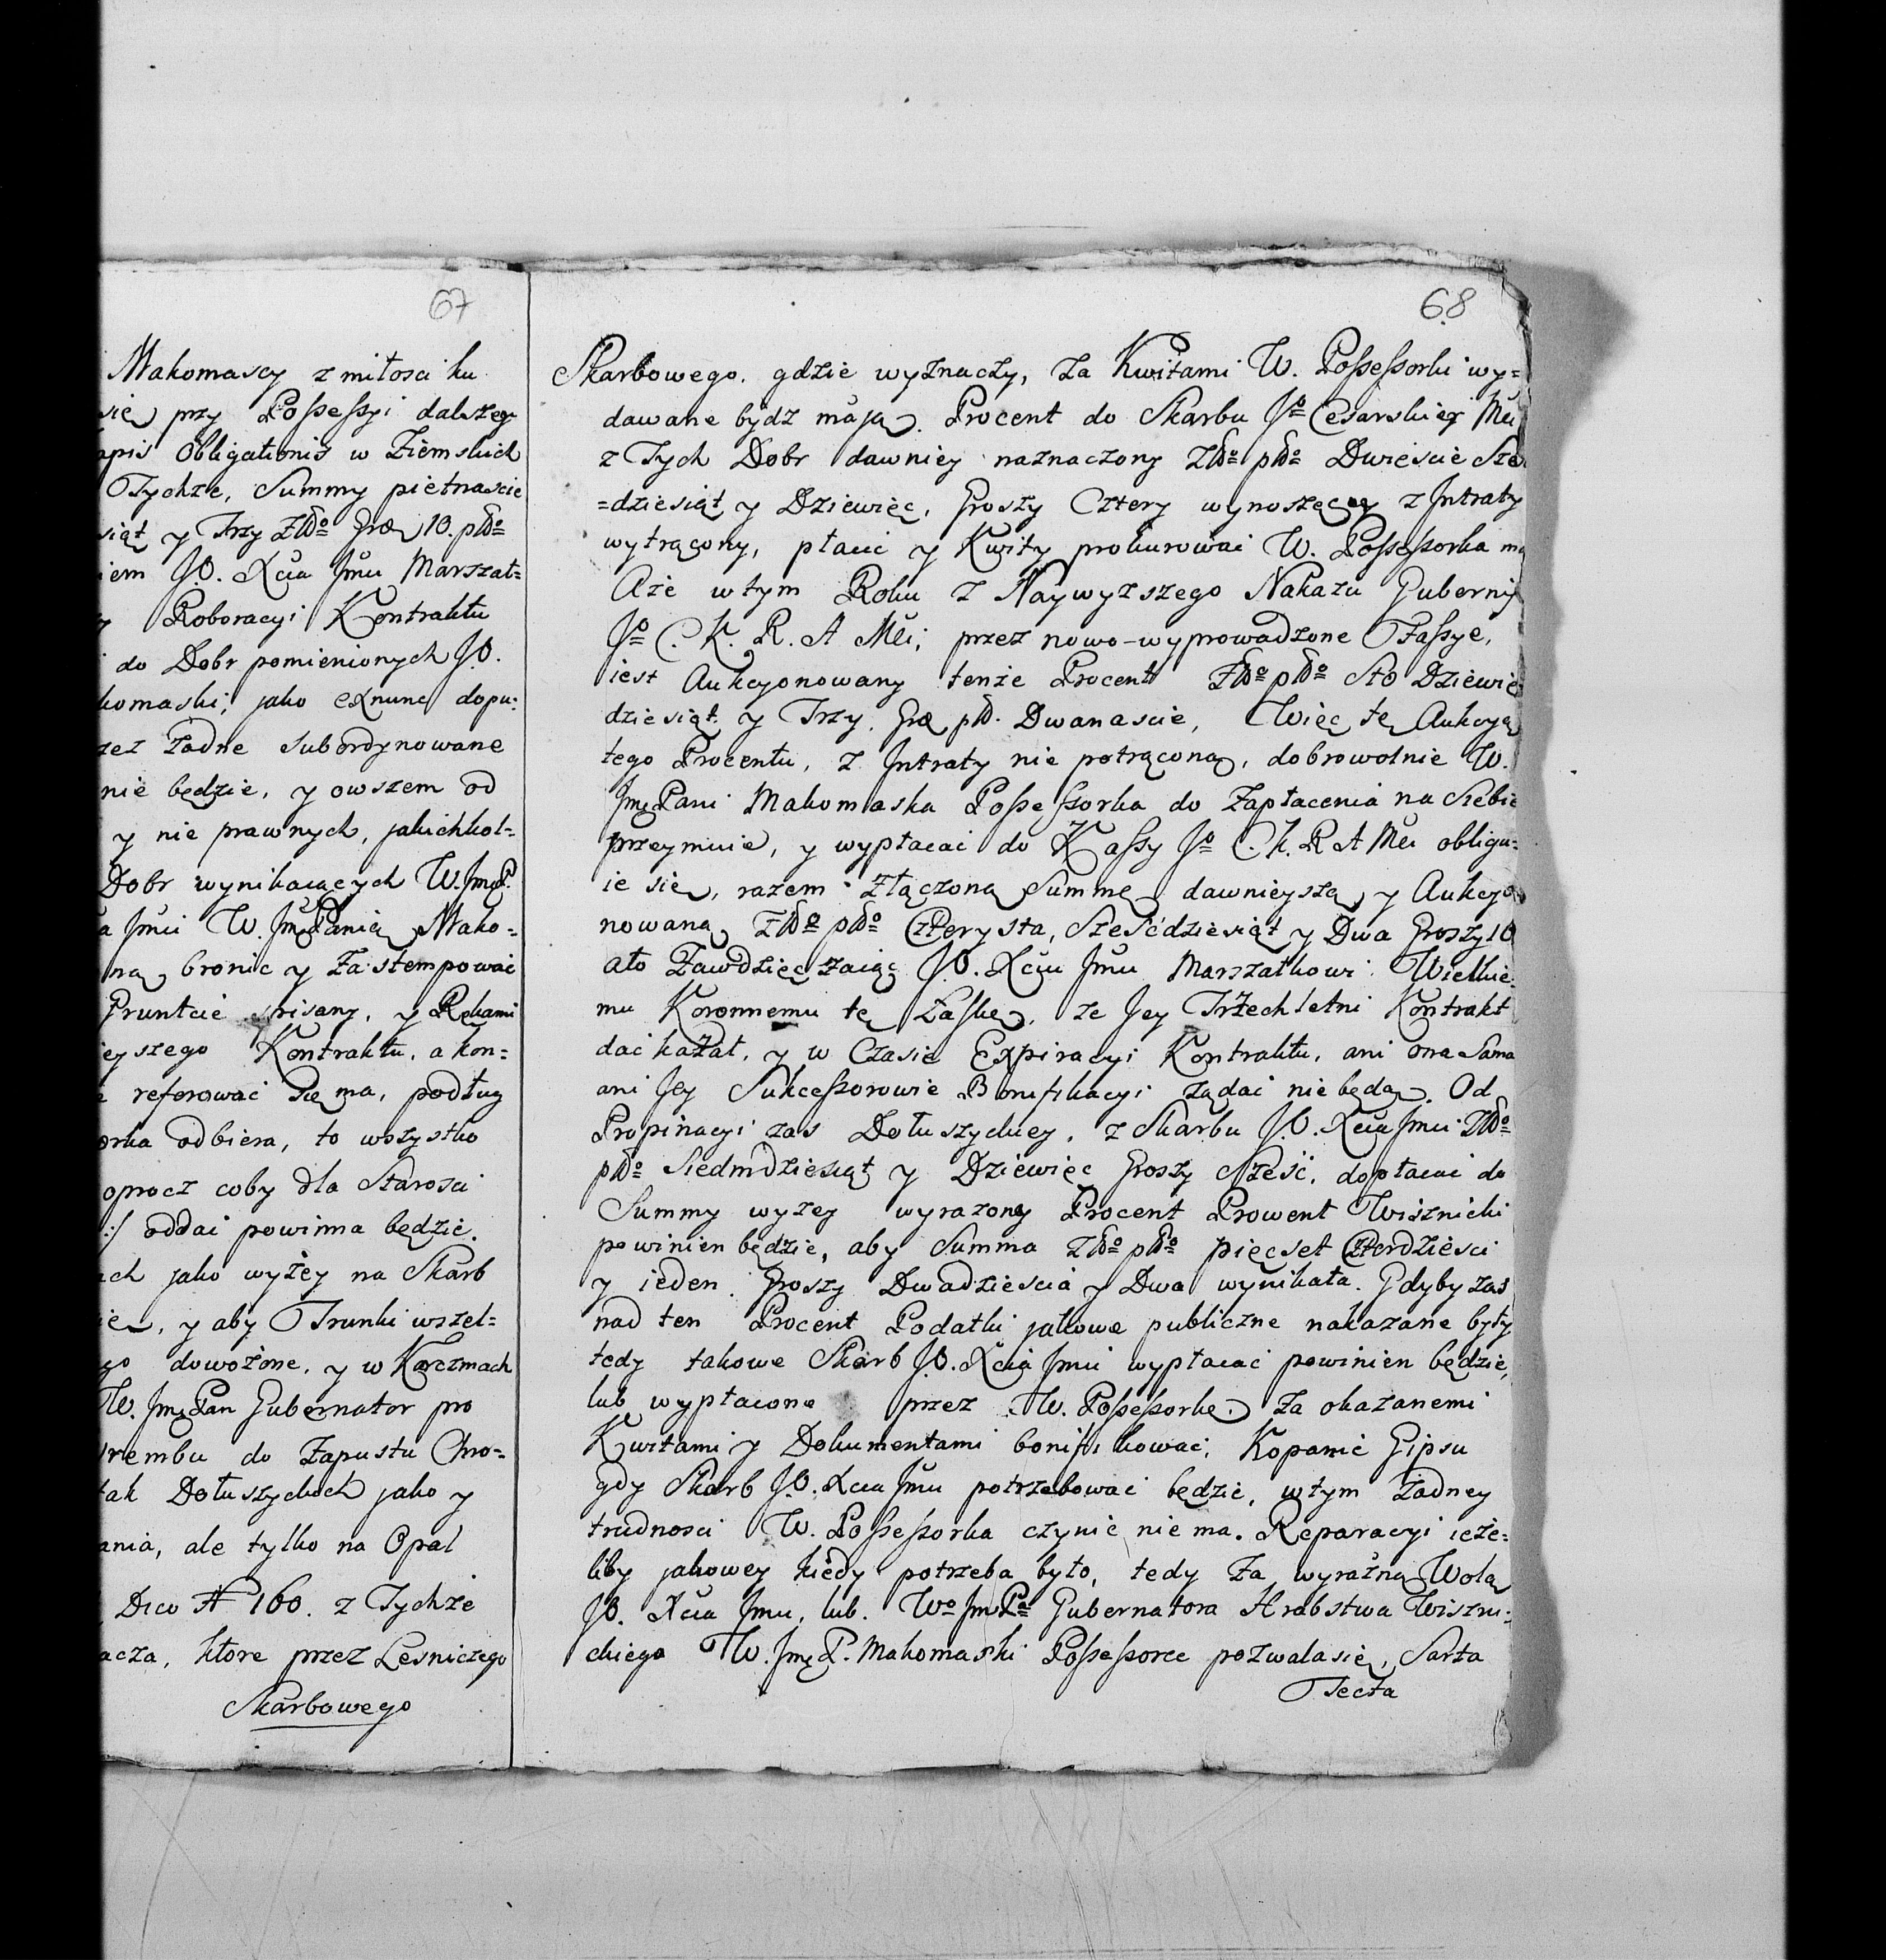 67
Makomascy z miłosci ku
się przy Possessyi dalszey
apis Obligationis w Ziemskich
Tychze, Summy piętnascie
siąt y Trzy Zło̅ Gro 10. plo̅
iem J.O. Xcia Jmci Marszał=
y Roboracyi Kontraktu
do Dobr pomienionych J.O.
komaski, jako exnunc dopu=
zez żadne subordynowane
nie będzie, y owszem od
y nie prawnych, jakichkol=
Dobr wynikaiących W. JmP.
a Jmci W. Jmę Panią Mako=
ną bronic y Zastempować
Gruntcie spisany, y Rękami
ieyszego Kontraktu, a kon=
referować się ma, podług
orka odbiera, to wszystko
oprocz coby dla Starosci
:/ oddai powinna będzie.
ach jako wyżey na Skarb
ie, y aby Trunki wszel=
go dowożone, y w Karczmach
W. Jmę Pan Gubernator pro
rembu do Zapustu Chro=
tak Dołuszyckich jako y
ania, ale tylko na Opał
Dico N 160. z Tychże
acza, ktore przez Lesniczego
Skarbowego
68
Skarbowego. gdzie wyznaczy, za Kwitami W. Possessorki wy=
dawane bydz mają. Procent do Skarbu Jo̅ Cesarskiey Mci
z Tych Dobr dawniey naznaczony Złło̅ plo̅ Dwieście Sze
=dziesiąt y Dziewięc, Groszy Cztery wynoszęcey z Jntraty
wytrącony, płacic y Kwity prokurowai W. Possessorka ma
Aże w tym Roku z Naywyzszego Nakazu Gubernij
Jo̅ C. K. R. A Mci; przez nowo-wyprowadzone Fassye,
iest Aukcyonowany tenże Procent Złło̅ plo̅ Sto Dziewię
dziesiąt y Trzy, Gro pł. Dwanascie, Więc tę Aukcyą
tego Procentu, z Jntraty nie potrąconą, dobrowolnie W.
Jmę Pani Makomaska Possessorka do Zapłacenia na Siebie
przeymuie, y wypłacać do Kassy Jo̅ C. k. R A Mci obligu=
ie się, razem Złączoną Summę dawnieyszą y Aukcyo
nowaną Złło̅ plo̅ Czterysta, Sześćdziesiąt y Dwa Groszy 16
ato Zawdzięczaiąc J.O. Xciu Jmci Marszałkowi Wielkie=
mu Koronnemu tę Łaskę, ze Jey Trzechletni Kontrakt
dać kazał, y w Czasie Expiracyi Kontraktu, ani ona Sama
ani Jey Sukcessorowie Bonifikacyi żądać nie będą. Od
Propinacyi zas Dołuszyckiey, z Skarbu J.O. Xcia Jmci Złło̅
plo̅ Siedmdziesiąt y Dziewięc Groszy Sześć, dopłacać do
Summy wyzey wyrazoney Procent Prowent Wisznicki
powinien będzie, aby Summa Złło̅ plo̅ pięcset Czterdziesci
y ieden Groszy Dwadzieścia y Dwa wynikała. Gdyby zas
nad ten Procent Podatki jakowe publiczne nakazane były
tedy takowe Skarb J.O. Xcia Jmci wypłacać powinien będzie,
lub wypłacone przez W. Possessorkę za okazanemi
Kwitami y Dokumentami bonifikować, Kopanie Gipsu
gdy Skarb J.O. Xcia Jmci potrzebować będzie, w tym żadney
trudnosci W. Possessorka czynić nie ma. Reparacyi ieże=
liby jakowey kiedy potrzeba było, tedy za wyraźną Wolą
J.O. Xcia Jmci, lub Wo̅ Jm Pa̅ Gubernatora Hrabstwa Wiszni=
ckiego W. Jmę P. Makomaski Possessorce pozwala się, Sarta
Tecta